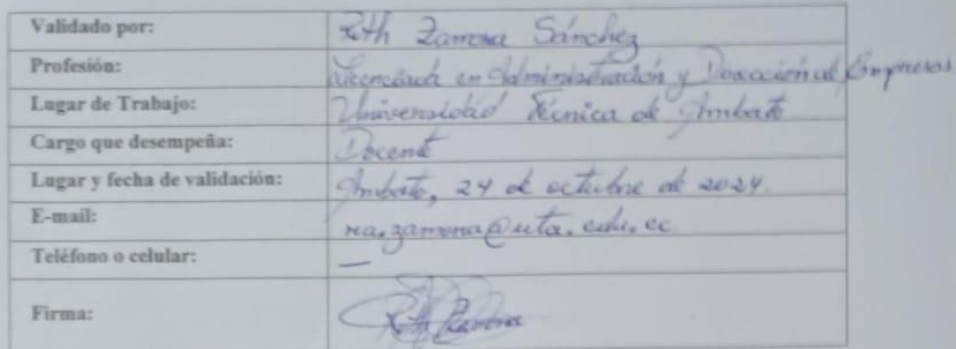 Validado por: Ruth Zamora Sánchez
Profesión: Licenciada en Administración y Dirección de Empresas
Lugar de Trabajo: Universidad Técnica de Ambato
Cargo que desempeña: Docente
Lugar y fecha de validación: Ambato, 24 de octubre de 2024.
E-mail: ra.zamora@uta.edu.ec
Teléfono o celular: —
Firma: Ruth Zamora